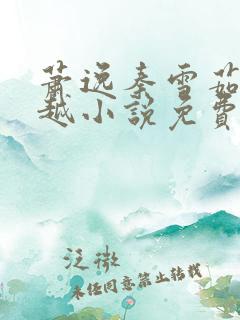 萧逸秦雪茹
越小说免费
泛微
未经同意禁止转载